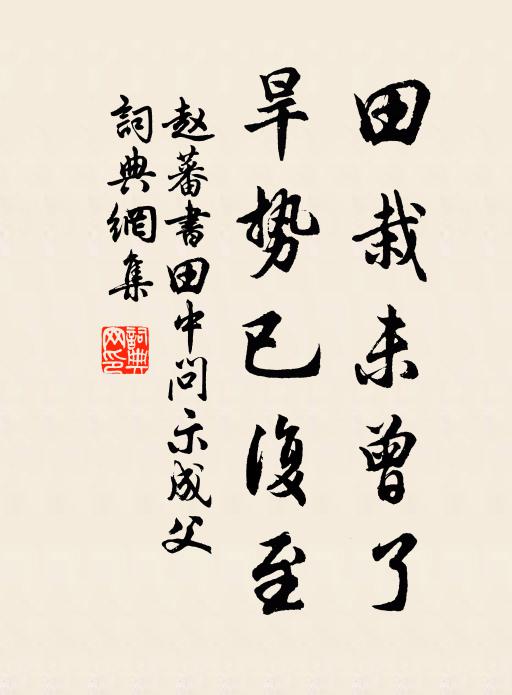 田栽未曾了
旱势已復至
赵蕃書田中问示成父
詞典網集
詞典网印